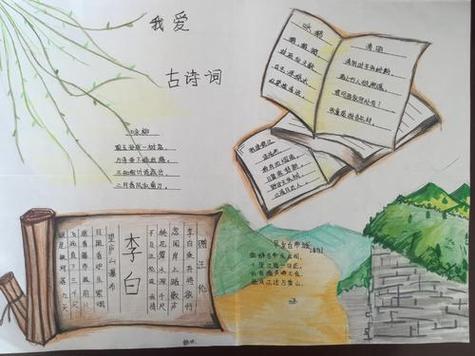 我爱
古诗词
咏柳
碧玉妆成一树高,
万条垂下绿丝绦。
不知细叶谁裁出,
二月春风似剪刀。
咏鹅
鹅鹅鹅,
曲项向天歌。
白毛浮绿水,
红掌拨清波。
清明
清明时节雨纷纷,
路上行人欲断魂。
借问酒家何处有?
牧童遥指杏花村。
赠汪伦
李白乘舟将欲行
忽闻岸上踏歌声
桃花潭水深千尺
不及汪伦送我情
李白
望庐山瀑布
日照香炉生紫烟
遥看瀑布挂前川
飞流直下三千尺
疑是银河落九天
早发白帝城
朝辞白帝彩云间,
千里江陵一日还。
两岸猿声啼不住,
轻舟已过万重山。